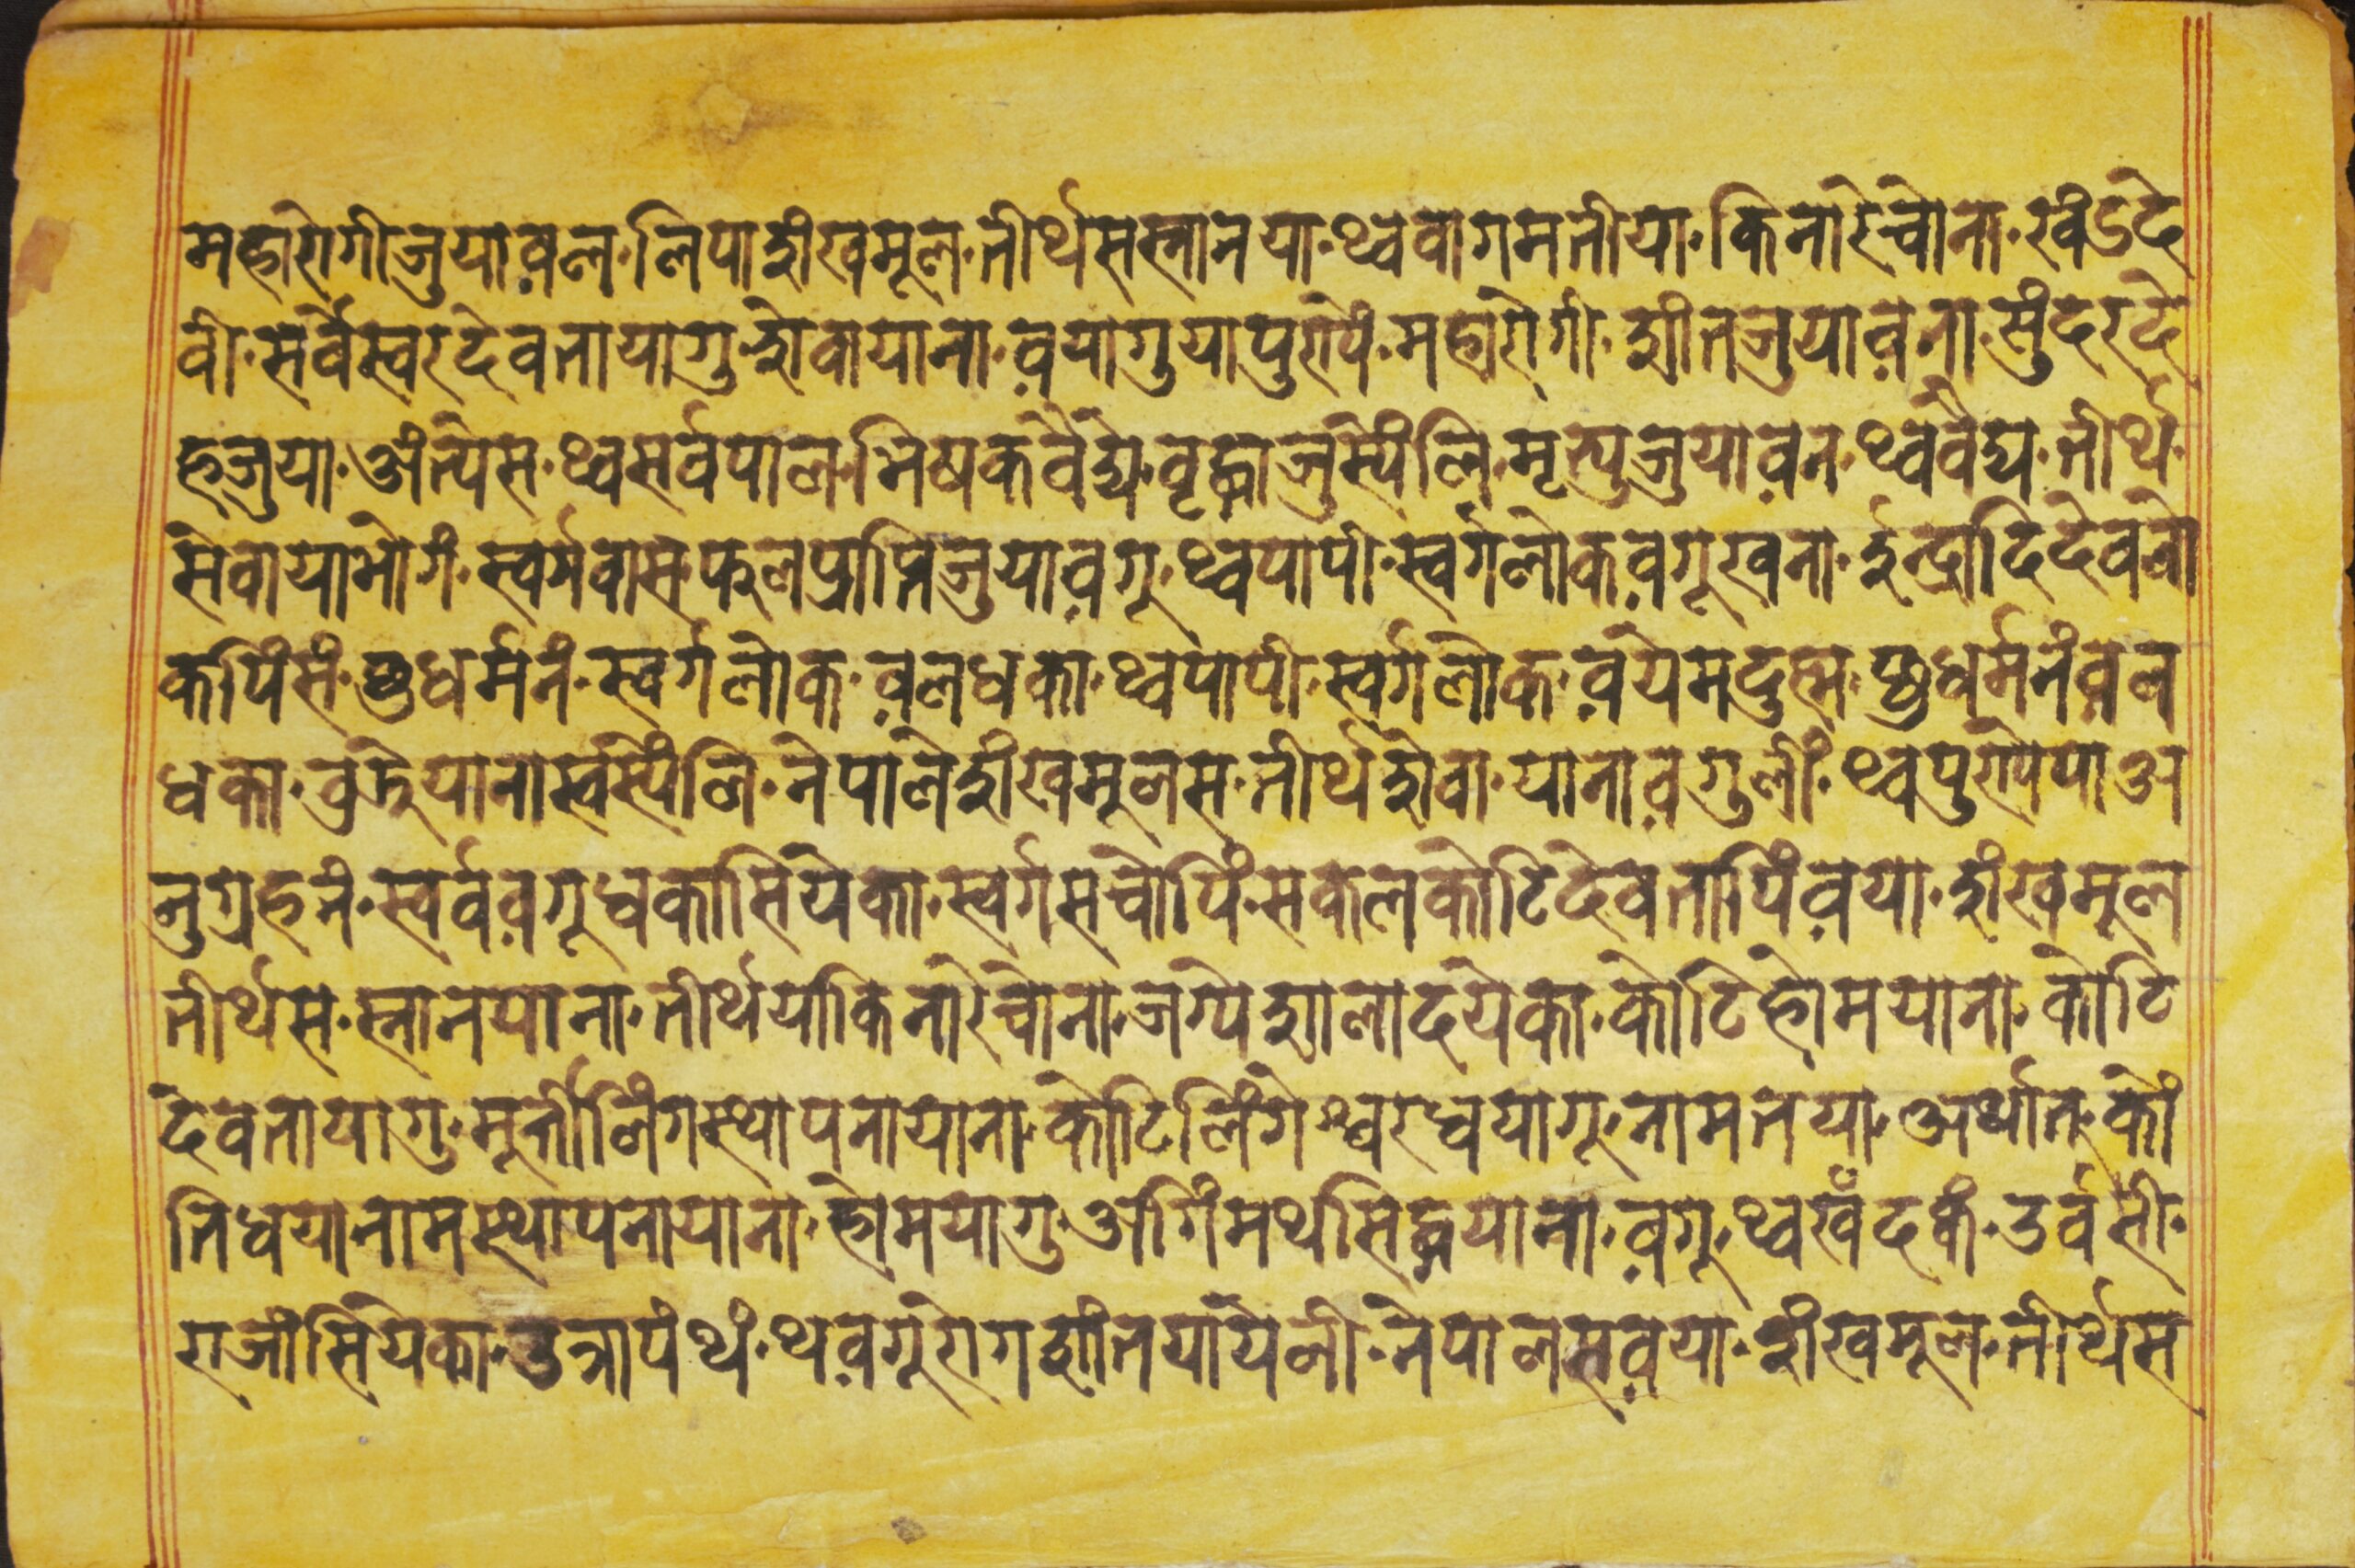 महारोगीजुयाव़ल॰लिपाशंखमूल॰तीर्थसस्नानया॰थ्ववागमतीया॰किनारेचोना॰खंडदे
वी॰सर्वेस्वरदेवतायागु॰शेवायाना॰व़यागुयापुराेपें॰महारोगी॰शांतजुयाव़ना॰सुंदरदे
हजुया॰अंत्येस॰थ्वसर्वपाल॰भिषकवैद्य॰वृद्धाजुस्येंलि॰मृत्युजुयाव़न॰थ्ववैद्य॰तीर्थ॰
सेवायाभोगं॰स्वर्गवास॰फलप्राप्तिजुयाव़गू॰थ्वपापी॰स्वर्गलोकव़गूखना॰ईन्द्रादिदेवलो
कपिंसं॰छुधर्मनं॰स्वर्गलोक॰व़लधका॰थ्वपापी॰स्वर्गलोक॰व़येमदुह्म॰छुधर्मनंव़ल
धका॰वुद्रेयानास्वस्येंलि॰नेपालेशंखमूलस॰तीर्थशेवा॰यानाव़गुलीं॰थ्वपुरापेयाअ
नुग्रहनं॰स्वर्वव़गूधकासियेका॰स्वर्गसचोपिं॰सकलकोटिदेवतापिंव़या॰शंखमूल
तीर्थस॰स्नानयाना॰तीर्थयाकिनारेचोना॰जग्येशालादयेका॰कोटिहोमयाना॰कोटि
देवतायागु॰मूर्त्तीलिंगस्थापनायाना॰कोटिलिंगेश्वरधयागू॰नामतया॰अर्थात॰कों
तिधयानामस्थापनायाना॰होमयागु॰अगिंमथसिद्धयाना॰व़गू॰थ्वखँदकं॰उर्वसी॰
राजांसियेका॰उत्रापंथं॰थव़गूरोगशांतयायेली॰नेपालसव़या॰शंखमूल॰तीर्थस